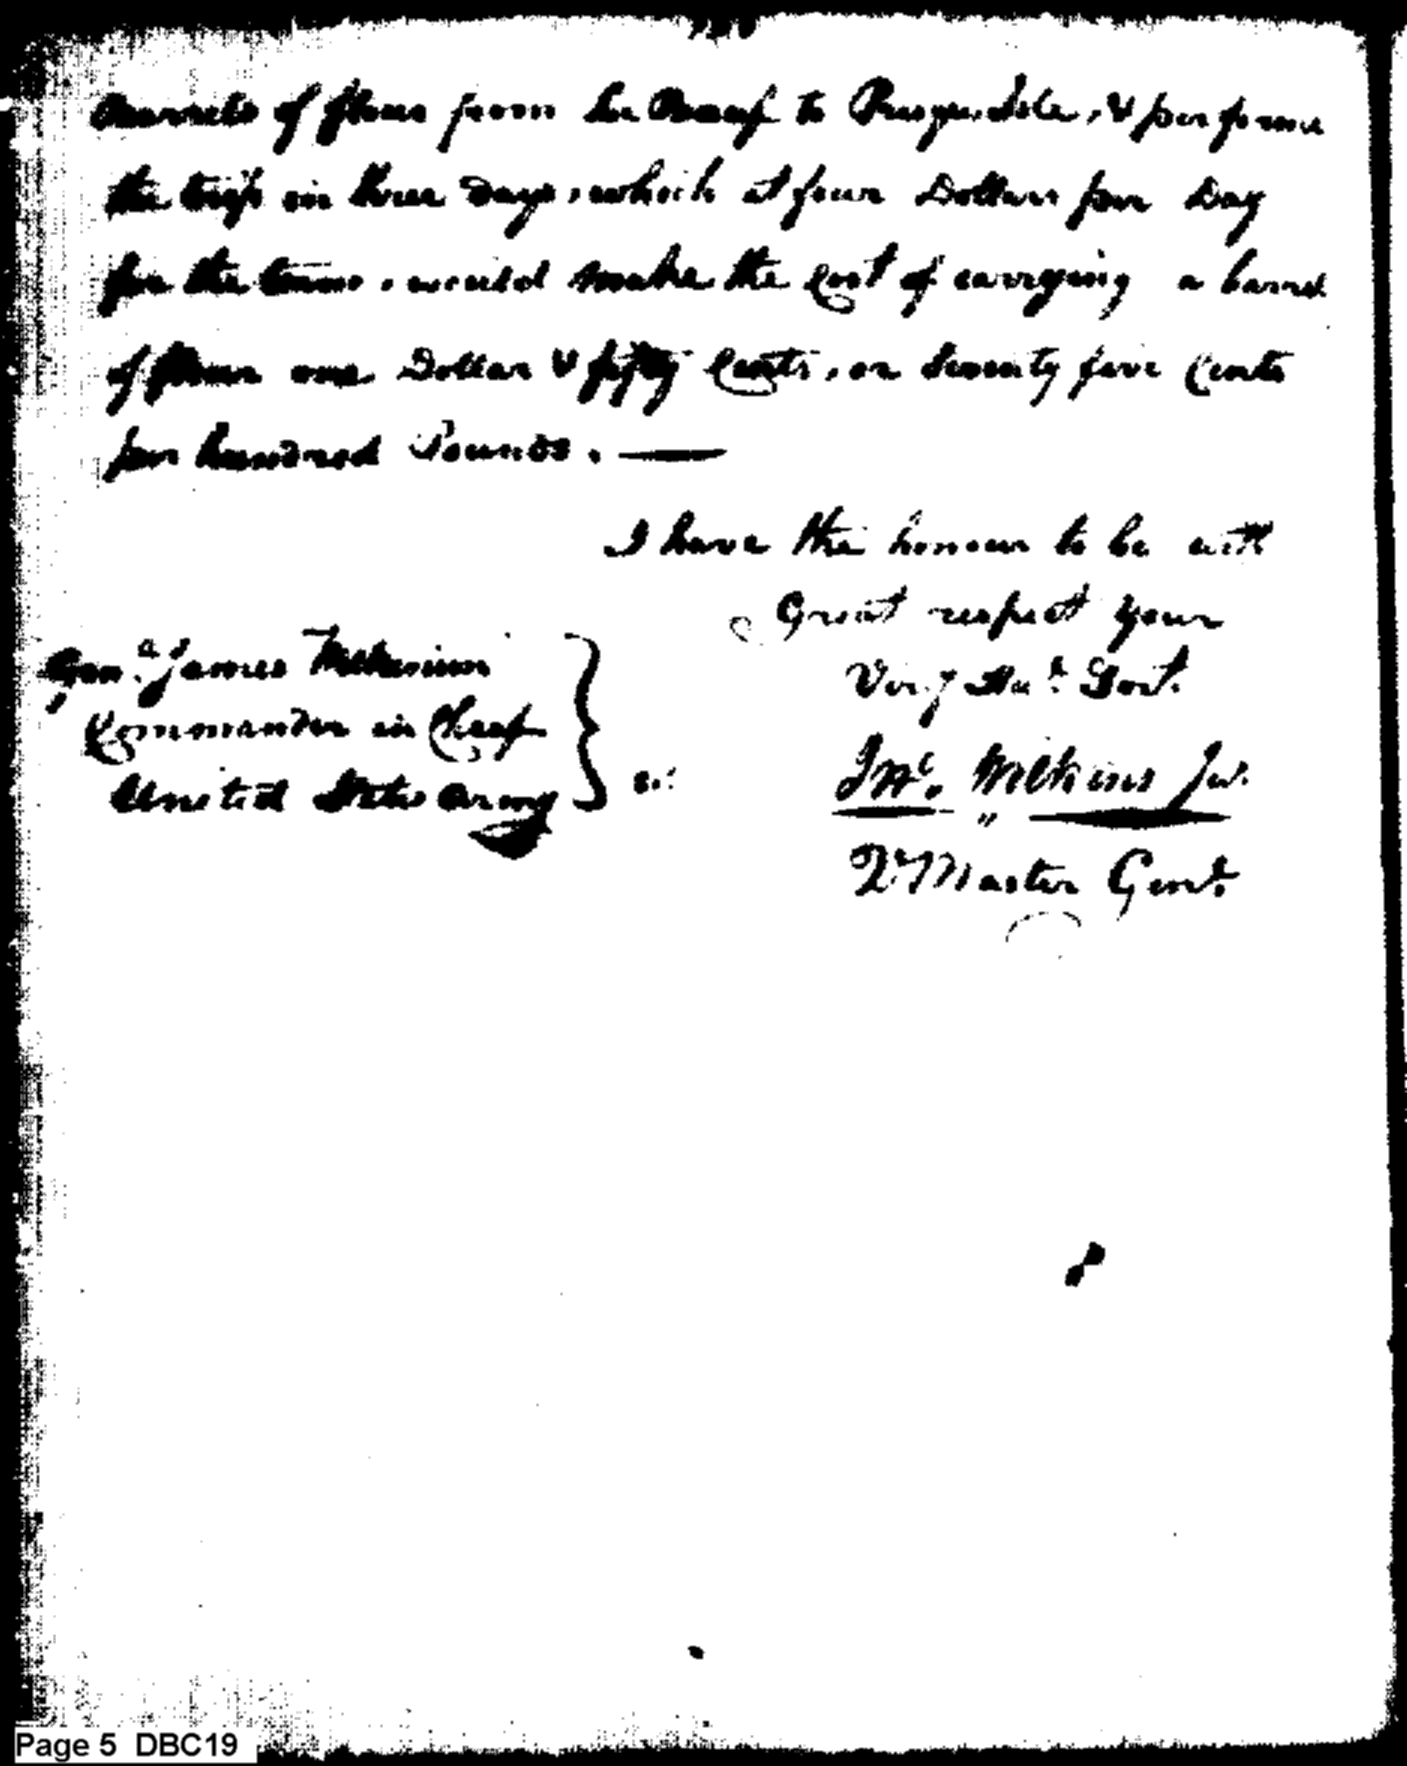 Barrels of flour from Le Boeuf to Presqu'Isle, & perform
the trip in three days, which at four Dollars per Day
for the team, would make the Cost of carrying a barrel
of flour one Dollar & fifty Cents, or Seventy five Cents
per hundred Pounds. —
I have the honour to be with
Great respect your
Very Hue. Servt.
Genl. James Wilkinson
Commander in Cheef
United States Army
Jno. Wilkins Jr.
Qr Master Genl.
Page 5 DBC19